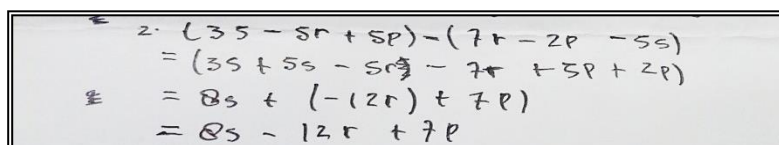 2. (3s - 5r + 5p) - (7r - 2p - 5s)
= (3s + 5s - 5r - 7r + 5p + 2p)
= 8s + (-12r) + 7p)
= 8s - 12r + 7p